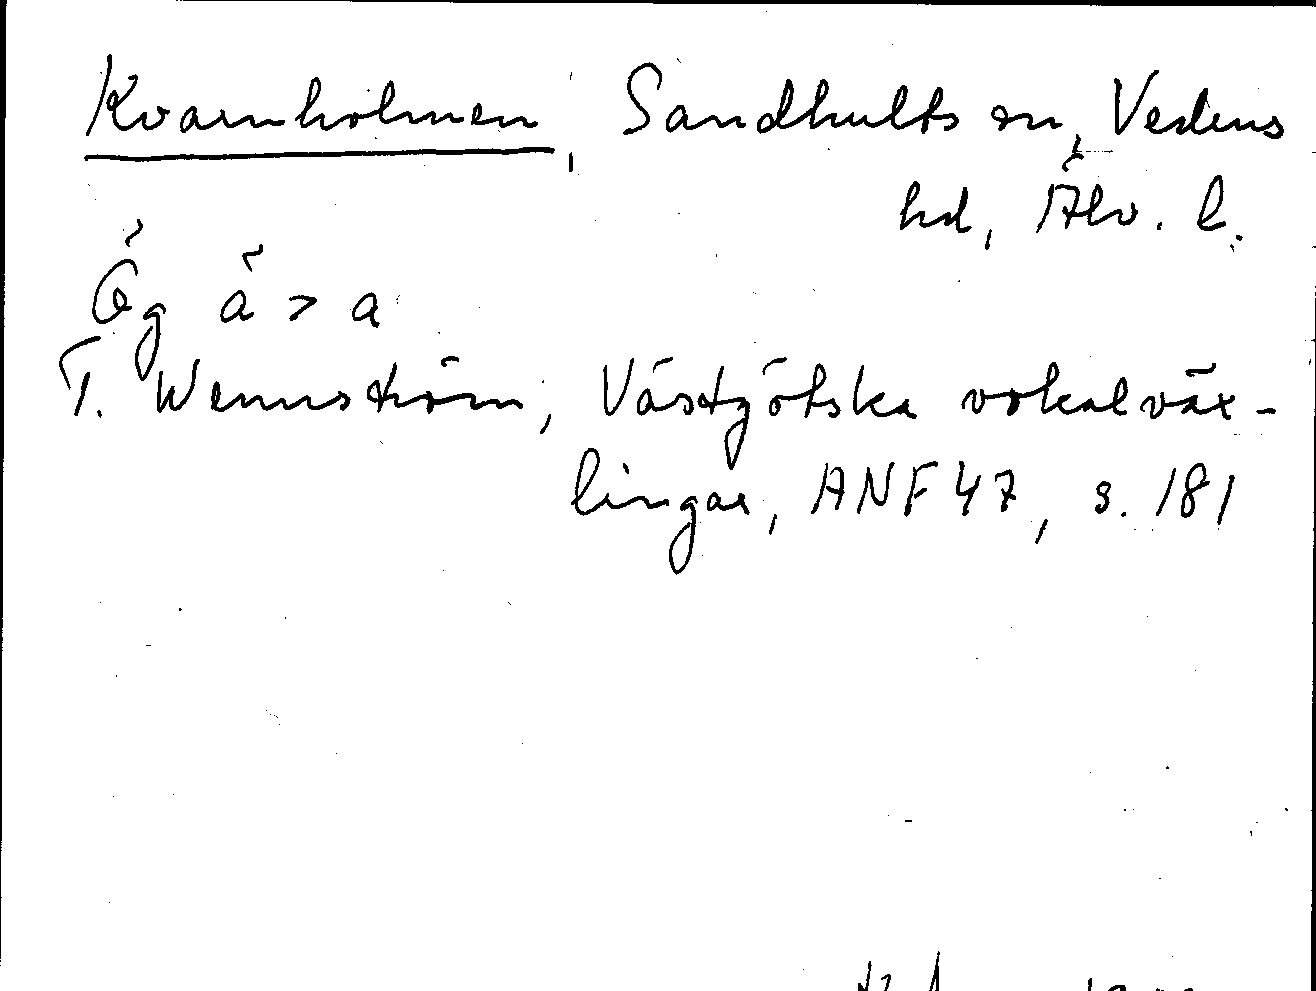 Kvarnholmen, Sandhults sn, Vedens
hd, Älv. l.
Ög ä > a
T. Wennström, Västgötska vokalväx-
lingar, ANF 47, s. 181